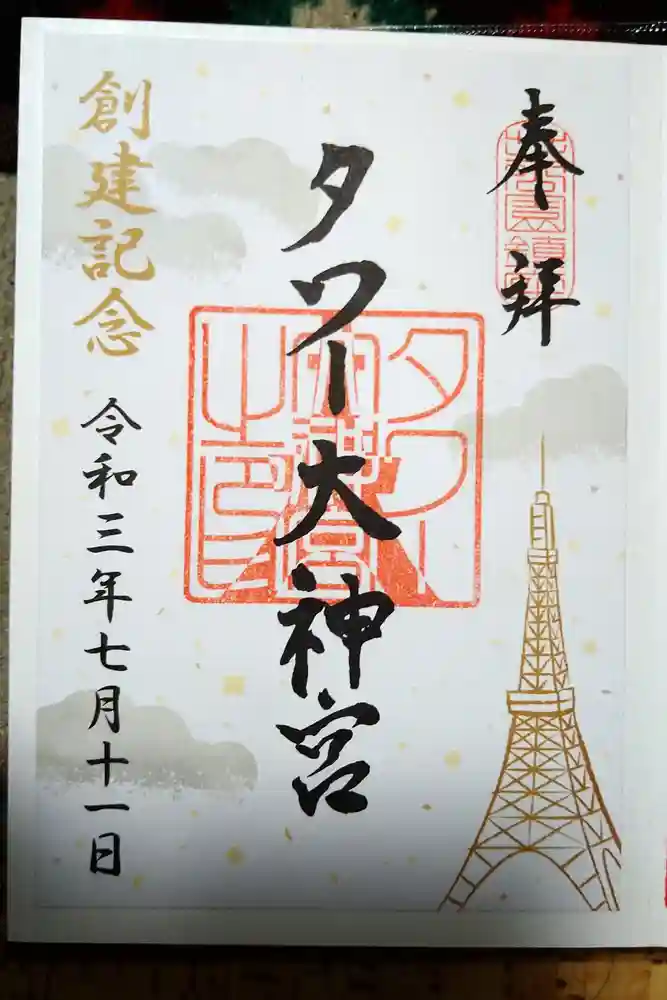 奉拝
タワー大神宮
創建記念
令和三年七月十一日
タワー
大神宮
之印